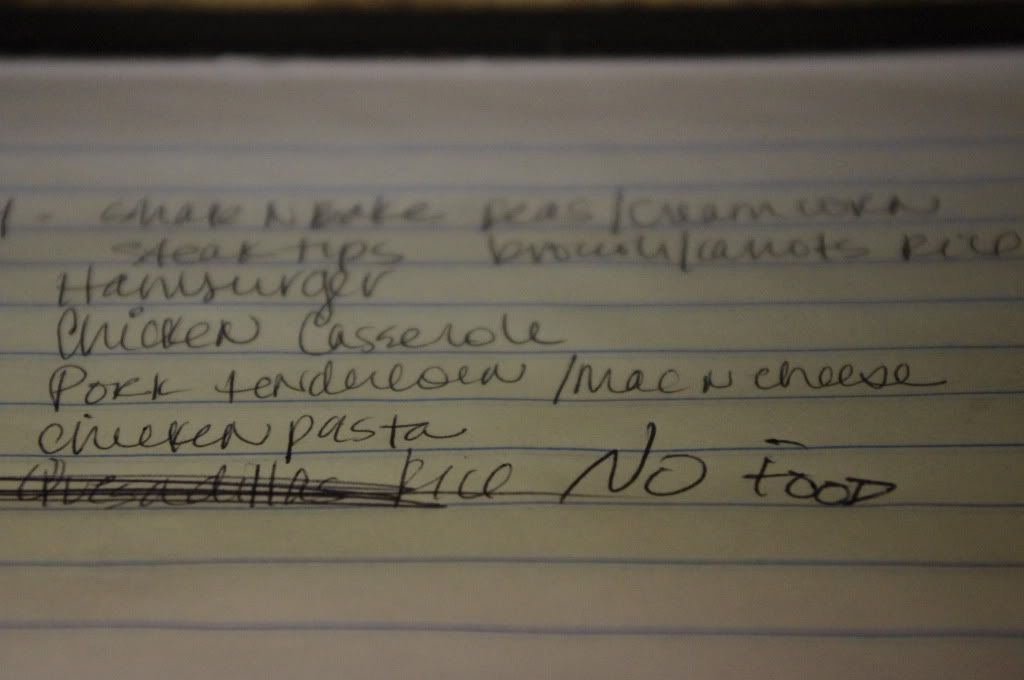 Shake N Bake peas/cream corn
steak tips brown/carrots Rice
Hamburger
Chicken Casserole
Pork tenderloin /mac n cheese
chicken pasta
Quesadillas Rice NO FOOD